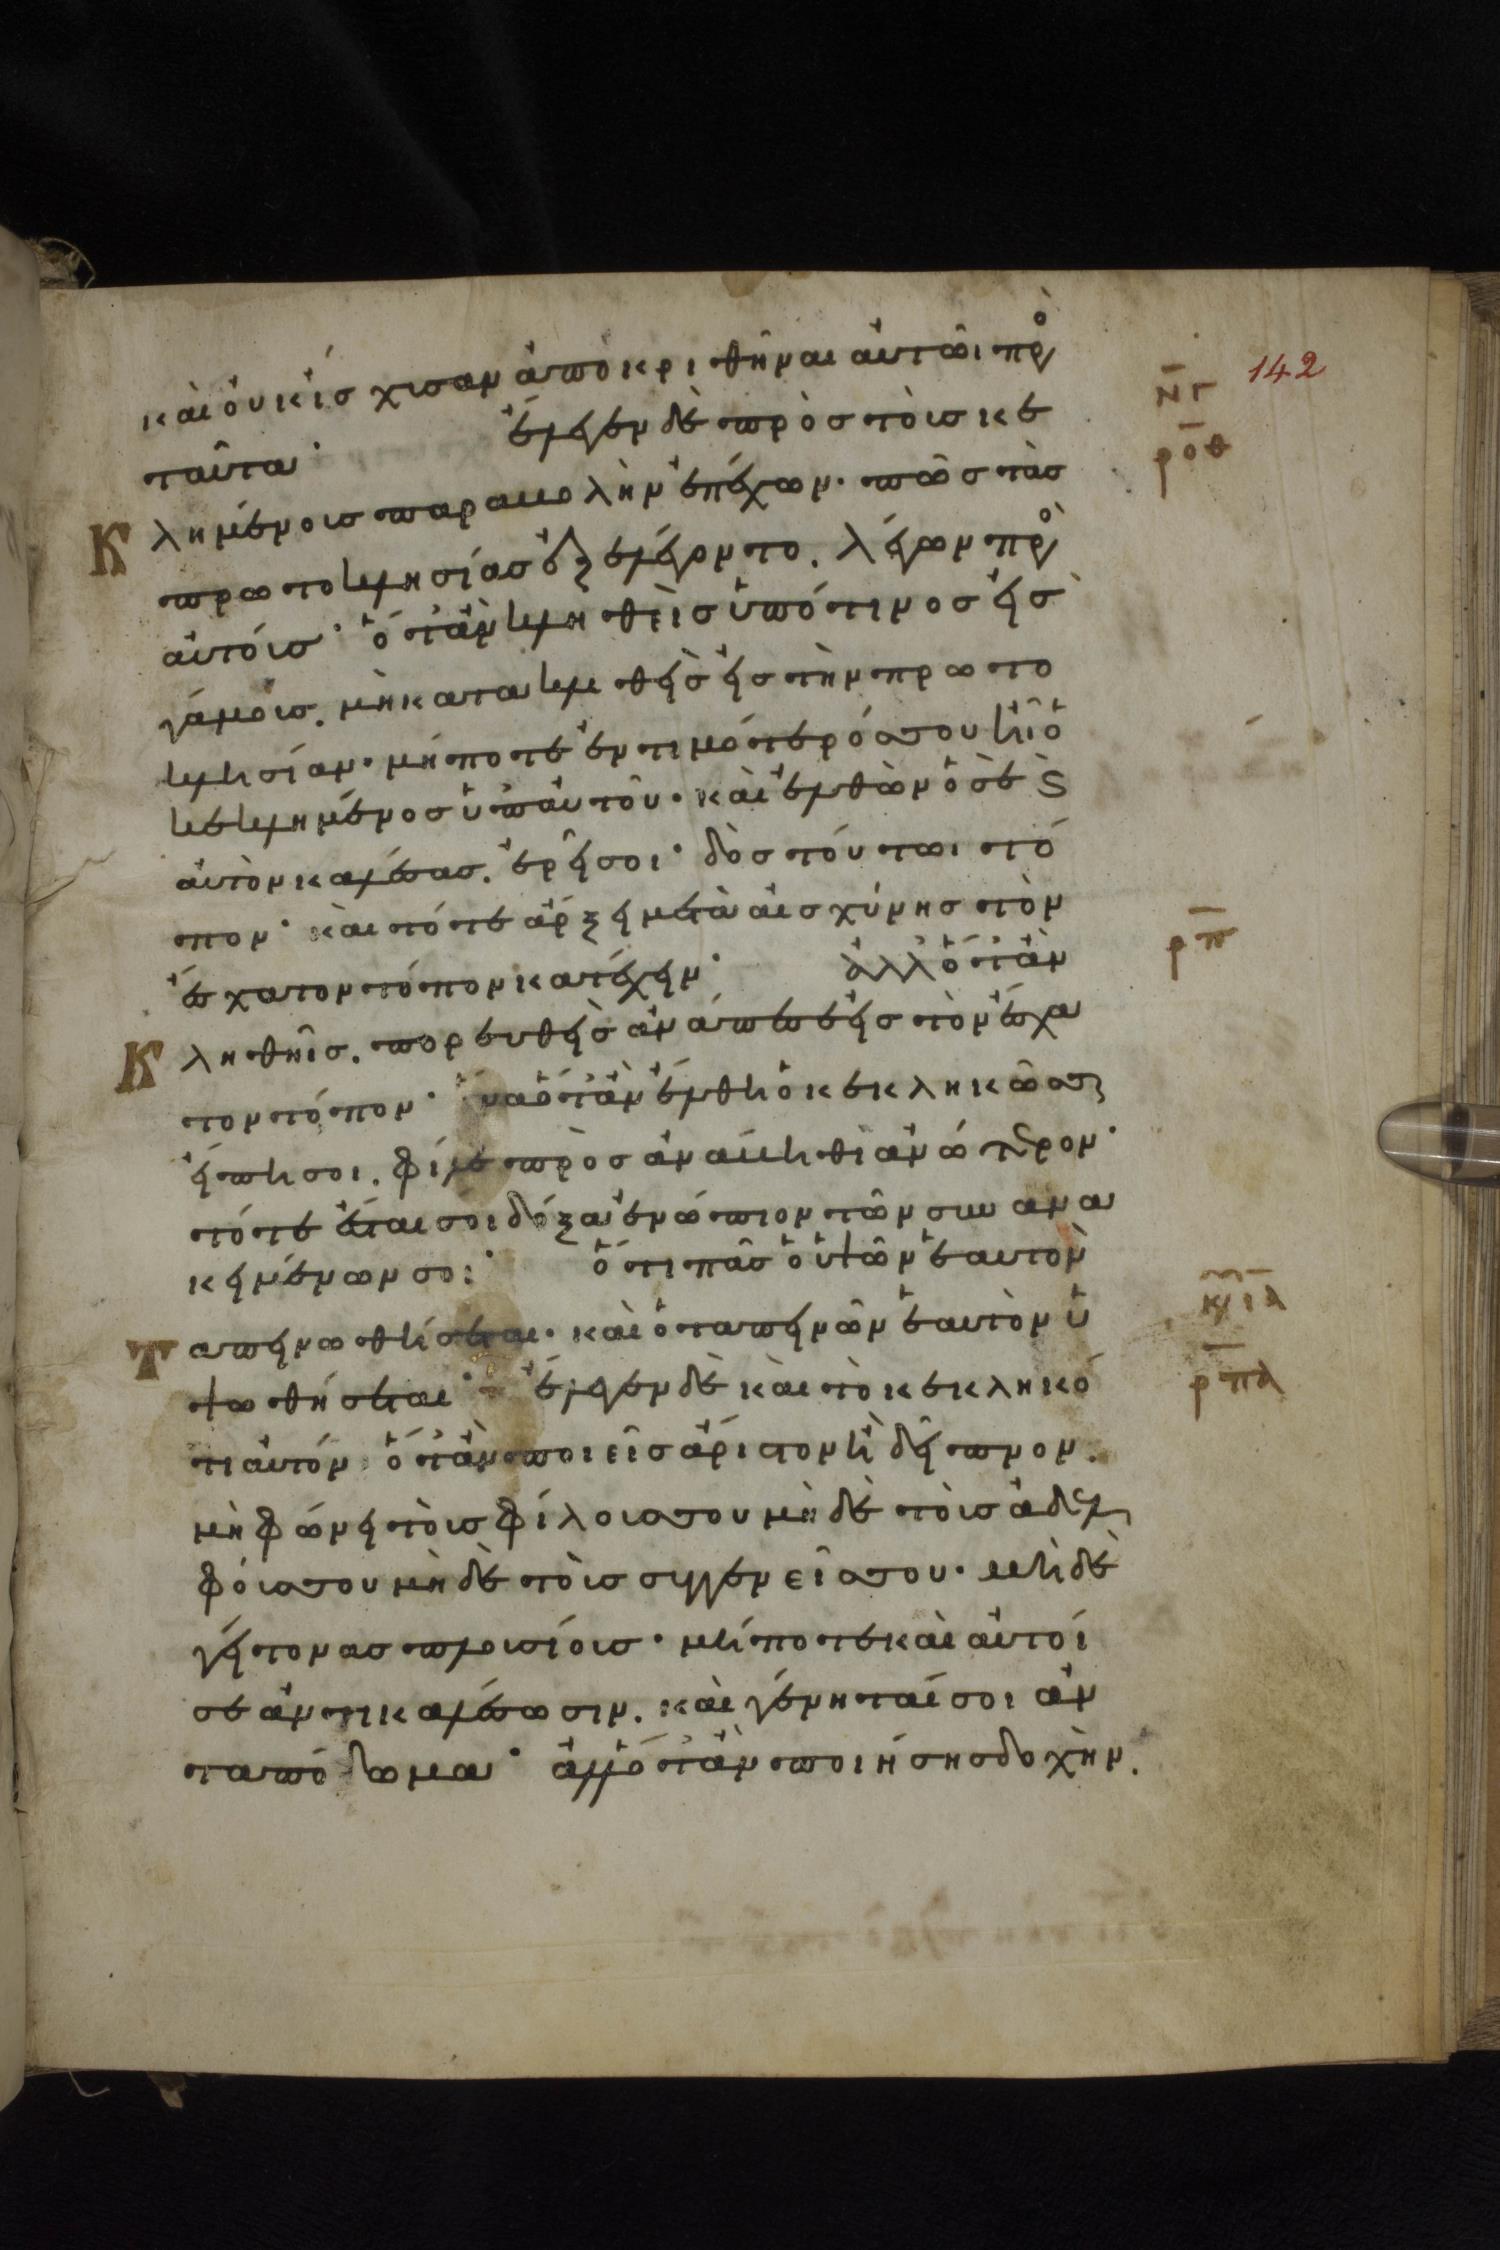 142
καὶ οὐκ ἴσχυσαν ἀποκριθῆναι αὐτῶι πρὸ
ν̅γ̅
ταῦτα· ἔλεγεν δὲ πρὸς τοὺς κε
ρ̅ο̅θ̅
κλημένους παραβολὴν ἐπέχων. πῶς τὰς
πρωτοκλησίας ἐξελέγοντο. λέγων πρὸ
αὐτούς· ὅταν κληθεὶς ὑπό τινος εἰς
γάμους. μὴ κατακλιθεὶς εἰς τὴν πρωτο
κλησίαν. μήποτε ἐντιμότερός σου ἦι ὁ
κεκλημένος ὑπ αὐτοῦ. καὶ ἐλθὼν ὁ σὲ ϗ
αὐτὸν καλέσας. ἐρεῖ σοι· δὸς τούτωι τό
πον· καὶ τότε ἄρξει μετὰ αἰσχύνης τὸν
ρ̅π̅
ἔσχατον τόπον κατέχειν· ἀλλ ὅταν
κληθῆις. πορευθεὶς ἀνάπεσε εἰς τὸν ἔσχα
τον τόπον· ἵνα ὅταν ἔλθη ὁ κεκληκώς σε
εἴπη σοι. φίλε προσανάβηθι ἀνώτερον·
τότε ἔσται σοι δόξα ἐνώπιον τῶν συνανα
κειμένων σοι· ὅτι πᾶς ὁ ὑψῶν ἑαυτὸν
ταπεινωθήσεται. καὶ ὁ ταπεινῶν ἑαυτὸν ὑ
ψωθήσεται· ἔλεγεν δὲ καὶ τῶ κεκληκό
ρ̅π̅α̅
τι αὐτόν ὅταν ποιεῖς ἄριστον ἢ δεῖπνον.
μὴ φώνει τοὺς φίλους σου μὴ δὲ τοὺς ἀδελ
φούς σου μὴ δὲ τοὺς συγγενεῖς σου. μὴ δὲ
γείτονας πλουσίους. μήποτε καὶ αὐτοί
σε ἀντικαλέσωσιν. καὶ γένηταί σοι ἀν
ταπόδομα· ἀλλ ὅταν ποιήσης δοχὴν.